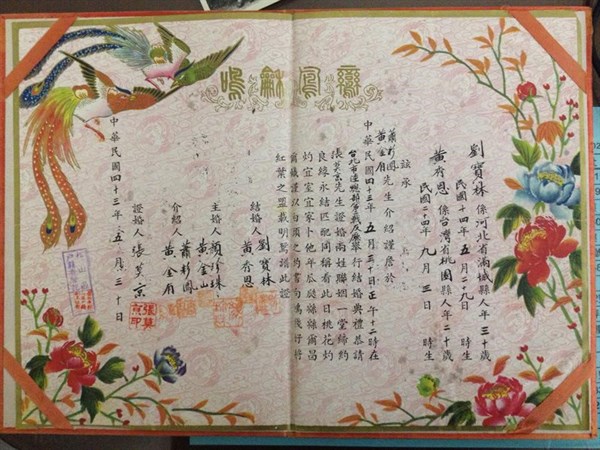 鸞鳳龢鳴
劉寶林 係河北省滿城縣人年三十歲
民國十四年五月二十九日 時生
黃 恩 係台灣省桃園縣人年二十歲
民國二十四年九月三日 時生
茲承
蕭彩鳳
黃金 先生介紹謹居於
中華民國四十三年五月三十日正午十二時在
台北市陸總部 廠舉行結婚典禮恭請
張莫京先生證婚兩姓聯姻一堂締約
良緣永結匹配同稱看此日桃花灼
灼宜室宜家卜他年瓜瓞綿綿爾昌
爾熾謹以白頭之約書向鴻箋好將
紅葉之盟載明鴛譜此證
結婚人 劉寶林
黃 恩
主婚人 顏珍珠
黃金山
介紹人 蕭彩鳳
黃金
證婚人 張莫京
中華民國四十三年五月三十日